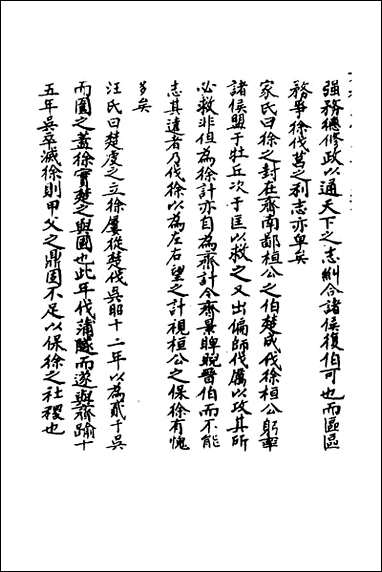 強務總修政以通天下之志糾合諸侯復伯可也而區區
務爭徐莒之利志亦卑矣
家氏曰徐之封在齊南鄙桓公之伯楚成伐徐桓公躬率
諸侯盟于牡丘次于匡以救之又出偏師伐厲以攻其所
必救非但為徐計亦自為齊計今齊景睥睨醫伯而不能
志其遠者乃伐徐以為左右望之計視桓公之保徐有愧
多矣
汪氏曰楚虔之立徐屢從楚伐吳昭十二年以為貳于吳
而圍之蓋徐實楚之與國也此年代蒲隧而遂與齊踰十
五年吳卒滅徐則甲父之鼎固不足以保徐之社稷也